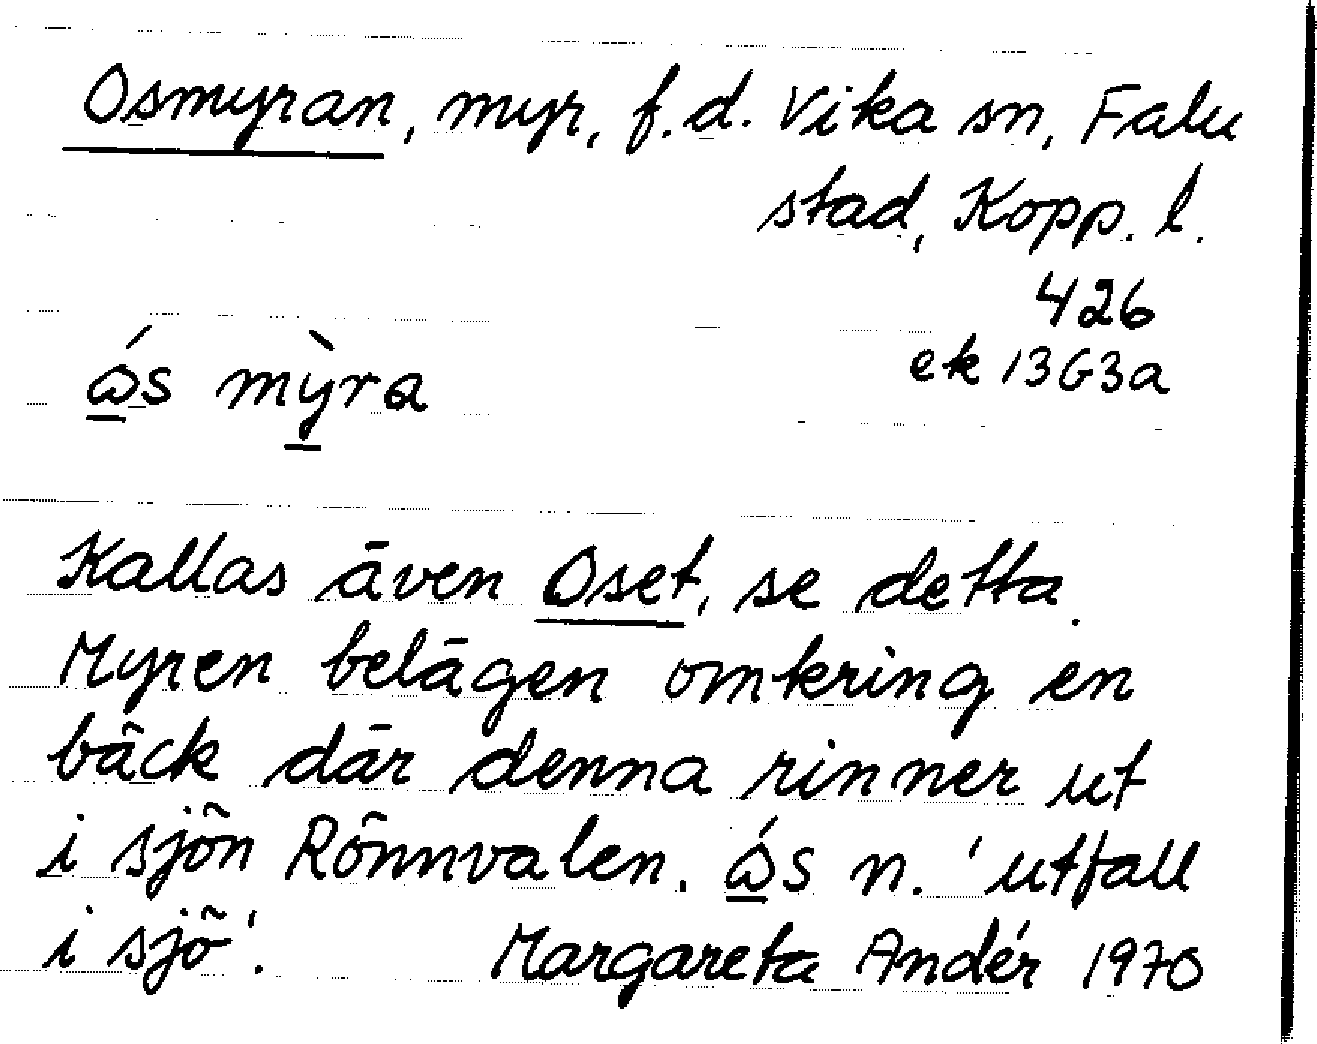 Osmyran, myr, f.d. Vika sn, Falu
stad, Kopp. l.
426
ek 13G3a
ɷ́s mỳra
Kallas även Oset, se detta.
Myren belägen omkring en
bäck där denna rinner ut
i sjön Rönnvalen. ɷ́s n. 'utfall
i sjö'. Margareta Andér 1970